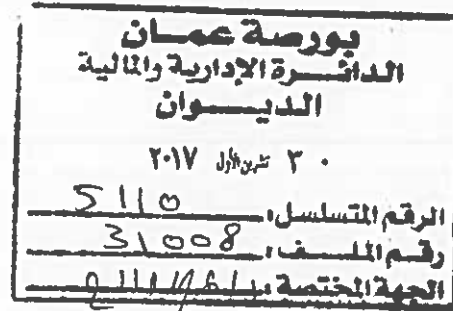 بورصة عمـــان
الدائـــرة الإدارية والمالية
الديـــــوان
٣٠ تشرين الأول ٢٠١٧
الرقم المتسلسل: 5110
رقم الملف: 31008
الجهة المختصة: